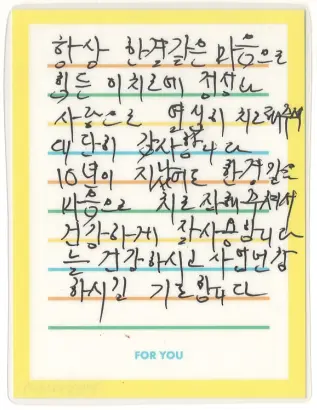 항상 한결같은 마음으로
힘든 이치료에 정성과
사랑으로 열심히 치료해주셔
대단히 감사합니다
10년이 지났어도 한결같은
마음으로 치료 잘해주셔서
건강하게 잘사용합니다
늘 건강하시고 사업번창
하시길 기도합니다
FOR YOU